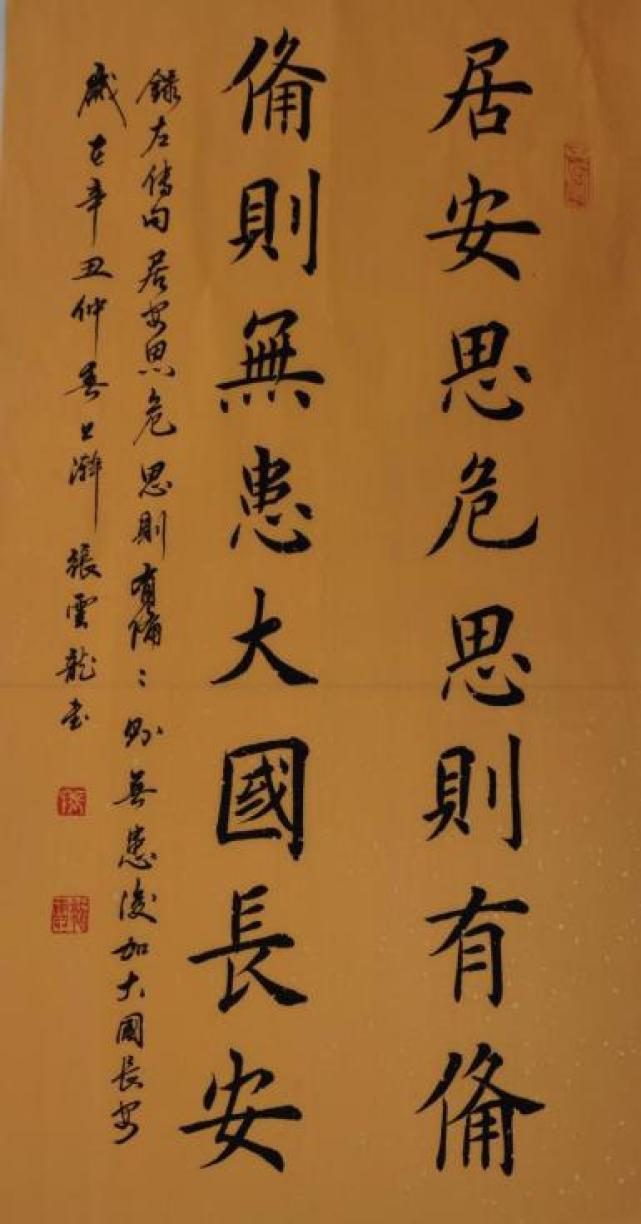 居安思危思則有俻
俻則無患大國長安
錄左傳句居安思危思則有俻〻則無患後加大國長安
歲在辛丑仲春上澣張雲龍書